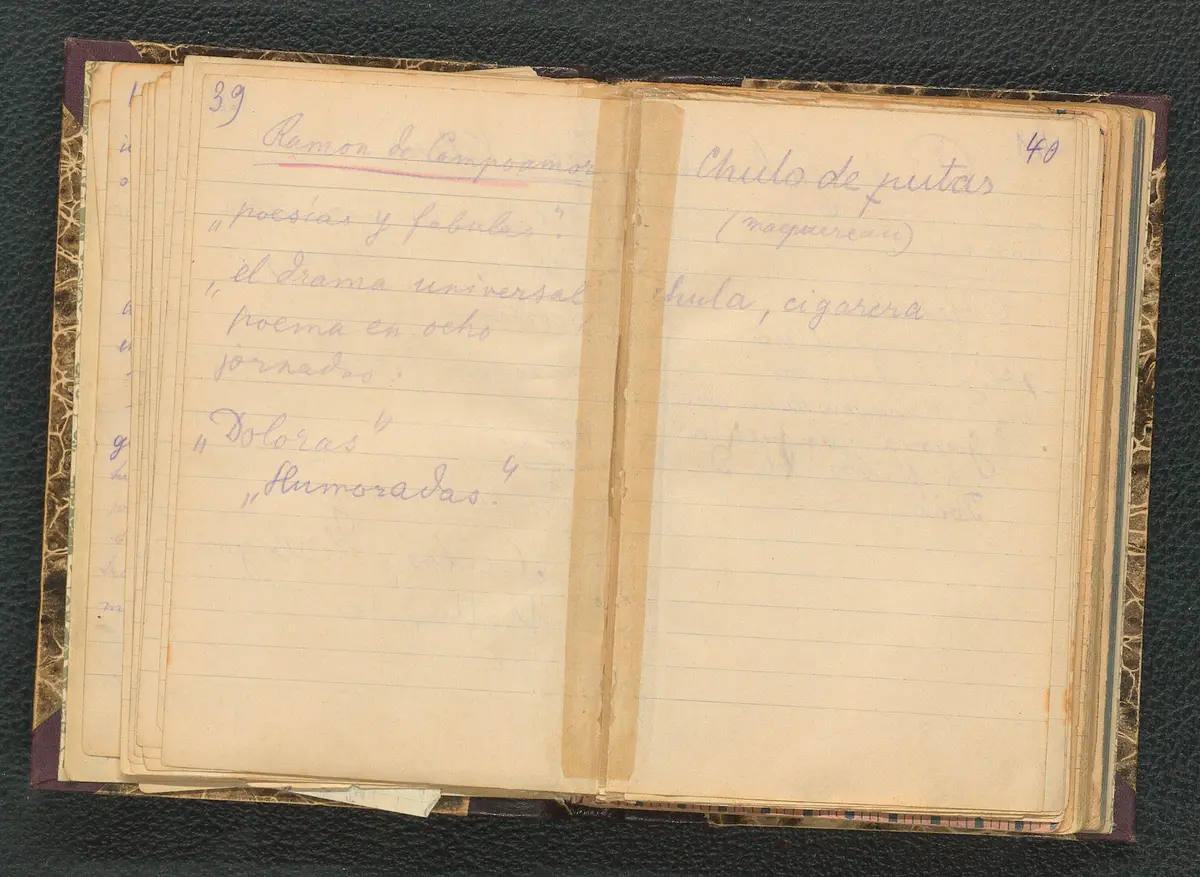 39
Ramon de Campoamor
„poesías y fabulas".
„el drama universal,
poema en ocho
jornadas.
„Doloras"
„Humoradas."
40
Chulo de putas
(maquereau)
chula, cigarera